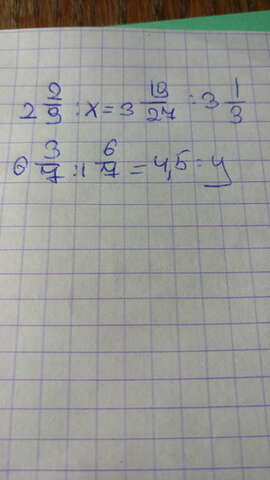 2 2/9 : x = 3 19/27 : 3 1/3
6 3/7 : 1 6/7 = 4,5 : y